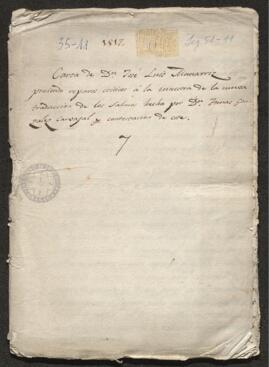 35-11 1817 Leg 51-11
Carta de Dn. José Luis Munarriz
poniendo reparos críticos á la muestra de la nueva
traduccion de los Salmos hecha por Dn. Tomas Gon
zalez Carvajal y contestacion de este.
7